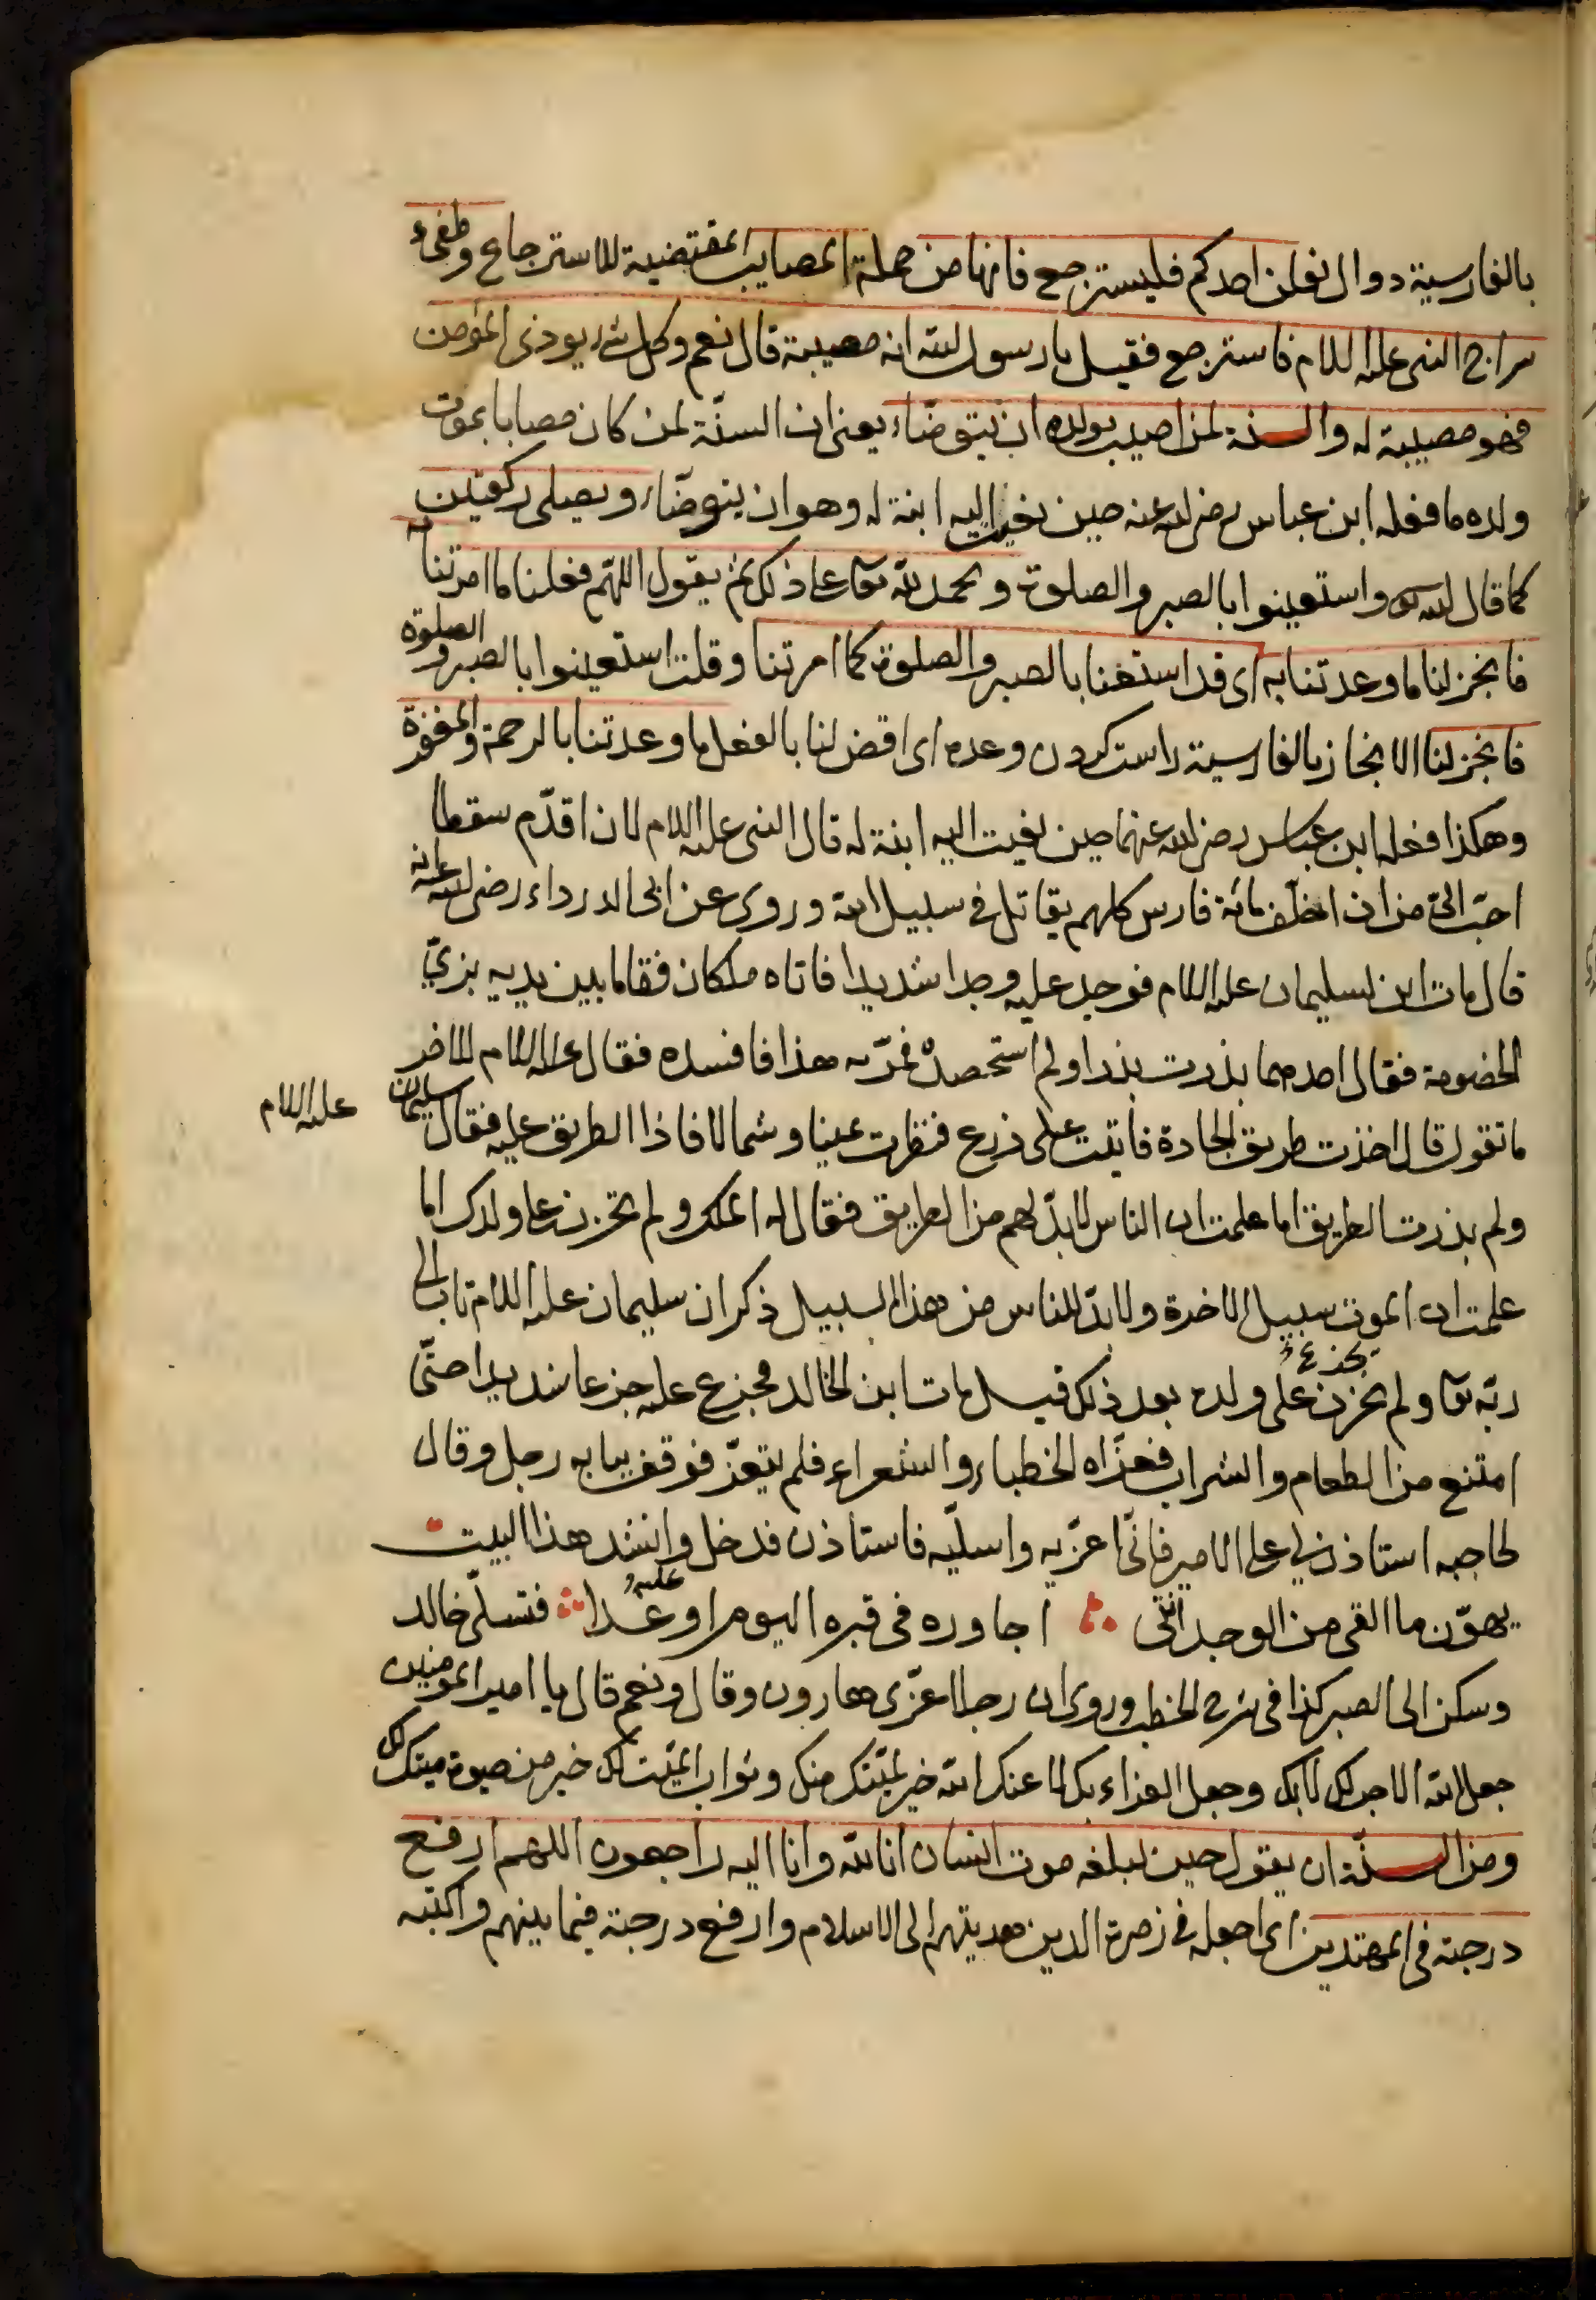 بالفارسية دوال نعلن احدكم فليسترجع فانها من جملة المصايب المقتضية للاسترجاع وطفئ
سراج النبي عليه السلام فاسترجع فقيل يا رسول الله انه مصيبة قال نعم وكل شئ يوذى المؤمن
فهو مصيبة له والسنة لمن اصيب بولده ان يتوضاء يعنى ان السنّة لمن كان مصابا بموت
ولده ما فعله ابن عباس رضى الله عنه حين نعيت اليه ابنة له وهو ان يتوضّاء ويصلى ركعتين
كما قال الله تعالى واستعينوا بالصبر والصلوة ويحمد الله تعالى على ذلك ثم يقول اللهّم فعلنا ما امرتنا به
فانجز لنا ما وعدتنا به اى قد استعنا بالصبر والصلوة كما امرتنا وقلت استعينوا بالصبر والصلوة
فانجز لنا الانجاز بالفارسية راست كردن وعده اى اقض لنا بالفعل ما وعدتنا بالرحمة والمغفرة
وهكذا فعله ابن عباس رضى الله عنهما حين نعيت اليه ابنة له قال النبي عليه السلام لان اقدّم سقطا
احبّ الىّ من ان اخلّف مائة فارس كلهم يقاتل فى سبيل الله وروى عن ابى الدرداء رضى الله عنه انه
قال مات ابن لسليمان عليه السلام فوجد عليه وجدا شديدا فاتاه ملكان فقاما بين يديه بزىّ
الخصومة فقال احدهما بذرت بذرا ولم استحصده فمرّ به هذا فافسده فقال عليه السلام للاخر
ما تقول قال اخذت طريق الجادة فاتيت على زرع فنظرت يمينا وشمالا فاذا الطريق عليه فقال سليمان عليه السلام
ولم بذرت الطريق اما علمت ان الناس لابدّ لهم من الطريق فقال له الملك ولم تحزن على ولدك اما
علمت ان الموت سبيل الاخرة ولابدّ للناس من هذا السبيل ذكر ان سليمان عليه السلام تاب الى
يجزع
ربّه تعالى ولم يحزن على ولده بعد ذلك قيل مات ابن لخالد فجزع عليه جزعا شديدا حتّى
امتنع من الطعام والشراب فعزّاه الخطباء والشعراء فلم يتعزّ فوقف ببابه رجل وقال
لحاجبه استاذن لي على الامير فانّى اعزّيه واسلّيه فاستاذن فدخل وانشد هذا البيت
يهوّن ما القى من الوجد اننّى اجاوره فى قبره اليوم او غدا فتسلّى خالد
وسكن الى الصبر كذا فى شرح الخطب وروى ان رجلا عزّى هارون وقال ونعم قال يا امير المؤمنين
جعل الله الاجر لك لا بك وجعل العزاء بك لا عنك الله خير لميّتك منك وثواب الميّت لك خير من حيوة ميتك لك
ومن السنّة ان يقول حين يبلغه موت انسان انا لله وانا اليه راجعون اللهم ارفع
درجته فى المهتدين اى اجعله فى زمرة الذين هديتهم الى الاسلام وارفع درجته فيما بينهم واكتبه